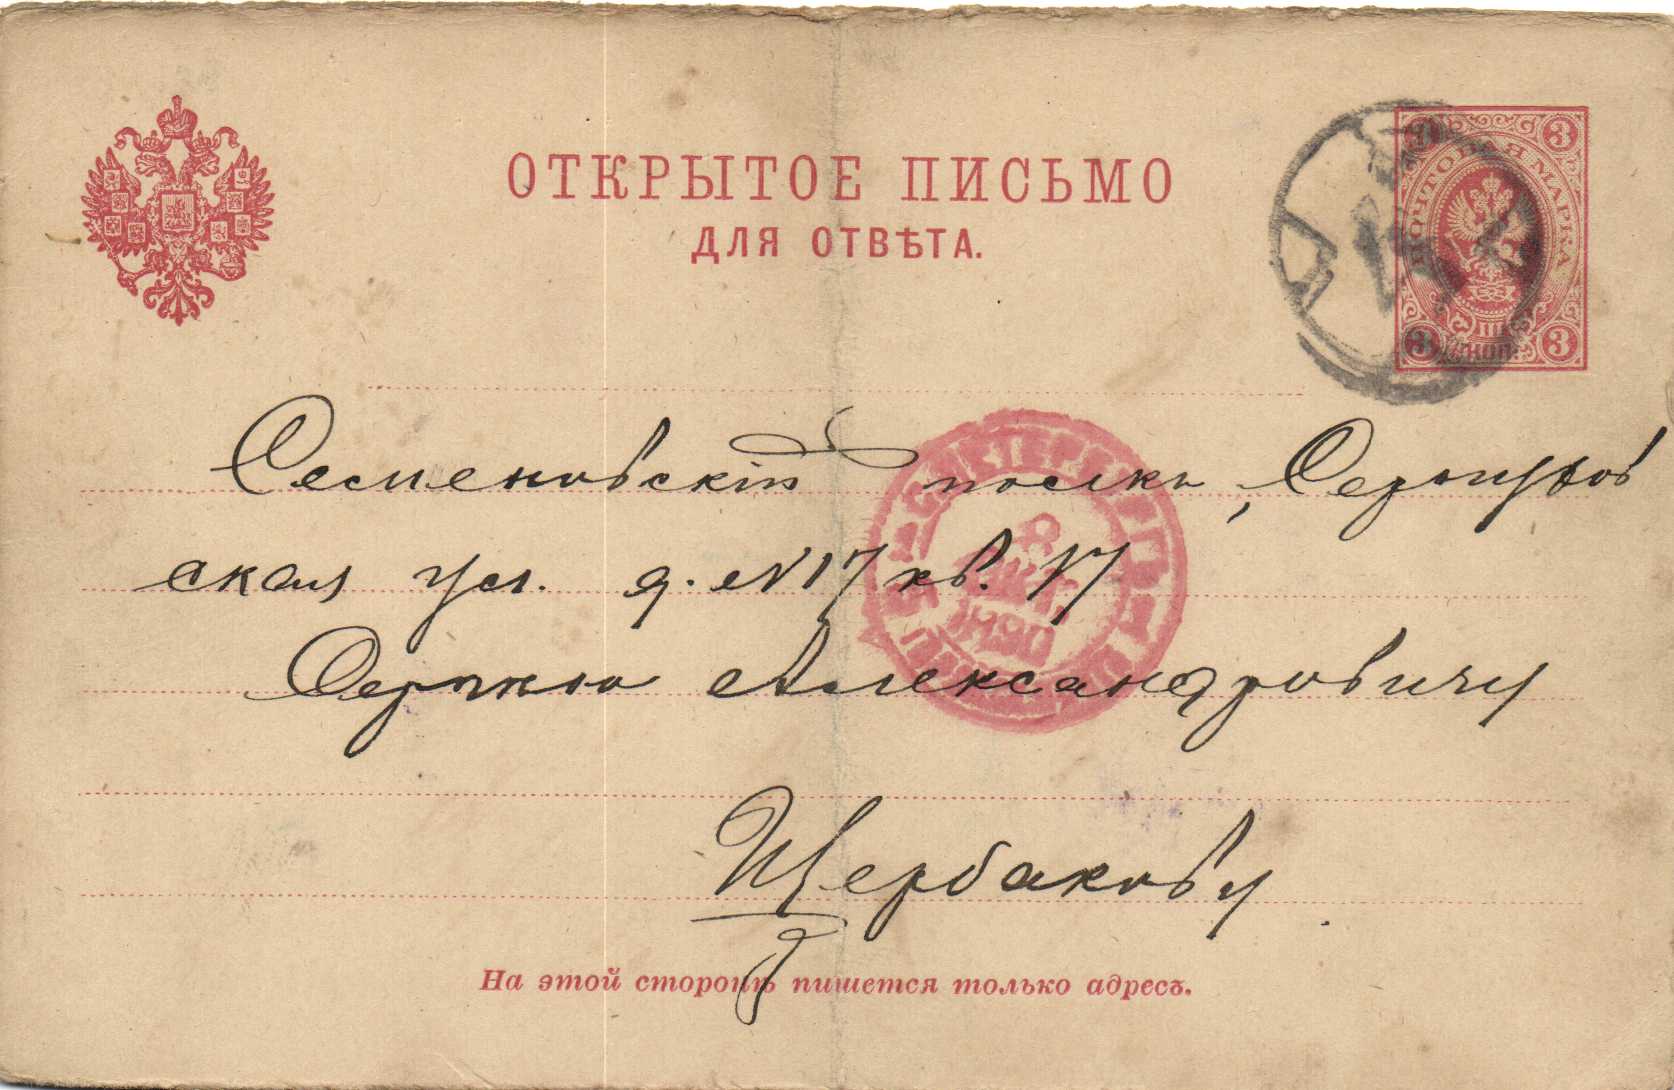 ОТКРЫТОЕ ПИСЬМО
ДЛЯ ОТВѢТА.
3 3
ПОЧТОВАЯ МАРКА
3 КОП. 3
Семеновскiй полкъ, Серпухов
ская ул. д. №17 кв. 17
8
1890
Сергѣю Александровичу
Щербакову
На этой сторонѣ пишется только адресъ.